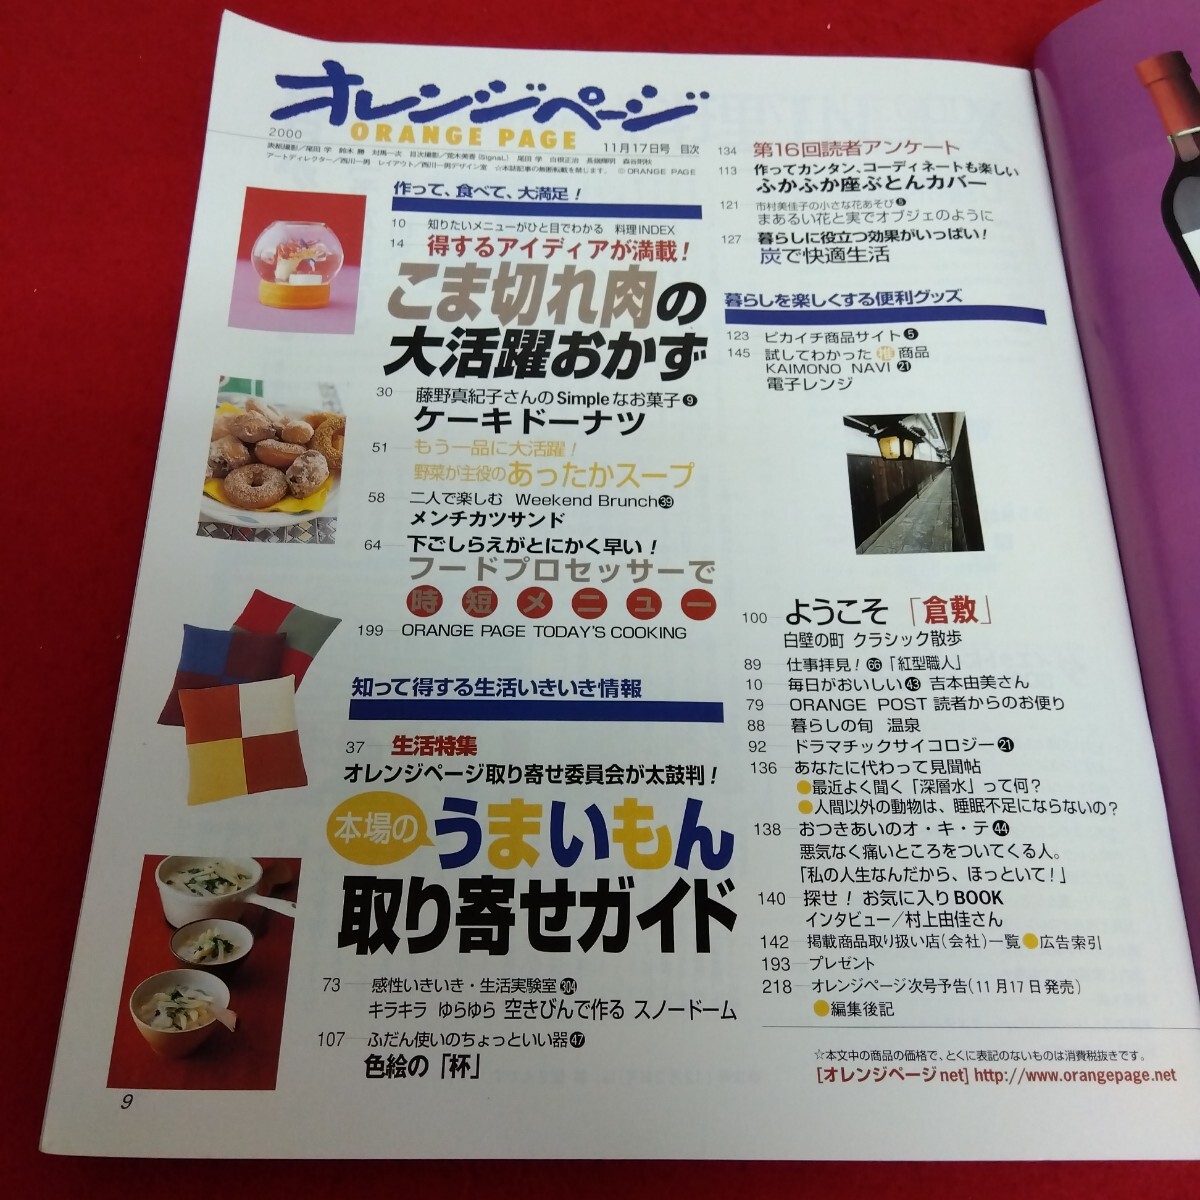 オレンジページ
ORANGE PAGE
2000
11月17日号 目次
表紙撮影／尾田 学 鈴木 勝 対馬一次 目次撮影／荒木美香(Signal.) 尾田 学 白根正治 長嶺輝明 森谷則秋
アートディレクター／西川一男 レイアウト／西川一男デザイン室 ☆本誌記事の無断転載を禁じます。 ©ORANGE PAGE
作って、食べて、大満足！
10 知りたいメニューがひと目でわかる 料理INDEX
14 得するアイディアが満載！
こま切れ肉の
大活躍おかず
30 藤野真紀子さんのSimpleなお菓子❾
ケーキドーナツ
51 もう一品に大活躍！
野菜が主役のあったかスープ
58 二人で楽しむ Weekend Brunch㊴
メンチカツサンド
64 下ごしらえがとにかく早い！
フードプロセッサーで
時短メニュー
199 ORANGE PAGE TODAY'S COOKING
知って得する生活いきいき情報
37 生活特集
オレンジページ取り寄せ委員会が太鼓判！
本場の うまいもん
取り寄せガイド
73 感性いきいき・生活実験室304
キラキラ ゆらゆら 空きびんで作る スノードーム
107 ふだん使いのちょっといい器㊼
色絵の「杯」
9
134 第16回読者アンケート
113 作ってカンタン、コーディネートも楽しい
ふかふか座ぶとんカバー
121 市村美佳子の小さな花あそび❺
まあるい花と実でオブジェのように
127 暮らしに役立つ効果がいっぱい！
炭で快適生活
暮らしを楽しくする便利グッズ
123 ピカイチ商品サイト❺
145 試してわかった 推 商品
KAIMONO NAVI㉑
電子レンジ
100 ようこそ「倉敷」
白壁の町 クラシック散歩
89 仕事拝見！66「紅型職人」
10 毎日がおいしい㊸ 吉本由美さん
79 ORANGE POST 読者からのお便り
88 暮らしの旬 温泉
92 ドラマチックサイコロジー㉑
136 あなたに代わって見聞帖
●最近よく聞く「深層水」って何？
●人間以外の動物は、睡眠不足にならないの？
138 おつきあいのオ・キ・テ㊹
悪気なく痛いところをついてくる人。
「私の人生なんだから、ほっといて！」
140 探せ！お気に入りBOOK
インタビュー／村上由佳さん
142 掲載商品取り扱い店(会社)一覧●広告索引
193 プレゼント
218 オレンジページ次号予告(11月17日発売)
●編集後記
☆本文中の商品の価格で、とくに表記のないものは消費税抜きです。
[オレンジページnet] http://www.orangepage.net